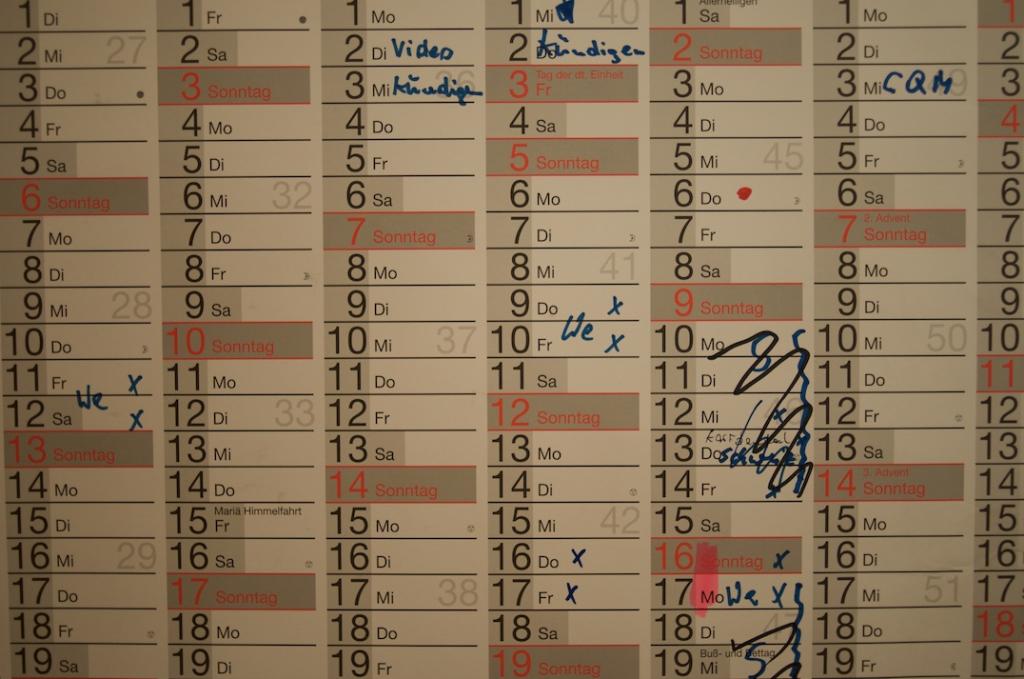 1 Di
2 Mi 27
3 Do
4 Fr
5 Sa
6 Sonntag
7 Mo
8 Di
9 Mi 28
10 Do
11 Fr x
We
12 Sa x
13 Sonntag
14 Mo
15 Di
16 Mi 29
17 Do
18 Fr
19 Sa
1 Fr
2 Sa
3 Sonntag
4 Mo
5 Di
6 Mi 32
7 Do
8 Fr
9 Sa
10 Sonntag
11 Mo
12 Di 33
13 Mi
14 Do
Mariä Himmelfahrt
15 Fr
16 Sa
17 Sonntag
18 Mo
19 Di
1 Mo
2 Di Video
3 Mi Kündigen 36
4 Do
5 Fr
6 Sa
7 Sonntag
8 Mo
9 Di
10 Mi 37
11 Do
12 Fr
13 Sa
14 Sonntag
15 Mo
16 Di
17 Mi 38
18 Do
19 Fr
1 Mi 40
2 Do Kündigen
Tag der dt. Einheit
3 Fr
4 Sa
5 Sonntag
6 Mo
7 Di
8 Mi 41
9 Do x
We
10 Fr x
11 Sa
12 Sonntag
13 Mo
14 Di
15 Mi 42
16 Do x
17 Fr x
18 Sa
19 Sonntag
Allerheiligen
1 Sa
2 Sonntag
3 Mo
4 Di
5 Mi 45
6 Do
7 Fr
8 Sa
9 Sonntag
10 Mo
11 Di
12 Mi x
13 Do
14 Fr x
15 Sa
16 Sonntag x
17 Mo We x
18 Di
Buß- und Bettag
19 Mi
1 Mo
2 Di
3 Mi CQM
4 Do
5 Fr
6 Sa
2. Advent
7 Sonntag
8 Mo
9 Di
10 Mi 50
11 Do
12 Fr
13 Sa
3. Advent
14 Sonntag
15 Mo
16 Di
17 Mi 51
18 Do
19 Fr
1
2
3
4
5
6
7
8
9
10
11
12
13
14
15
16
17
18
19